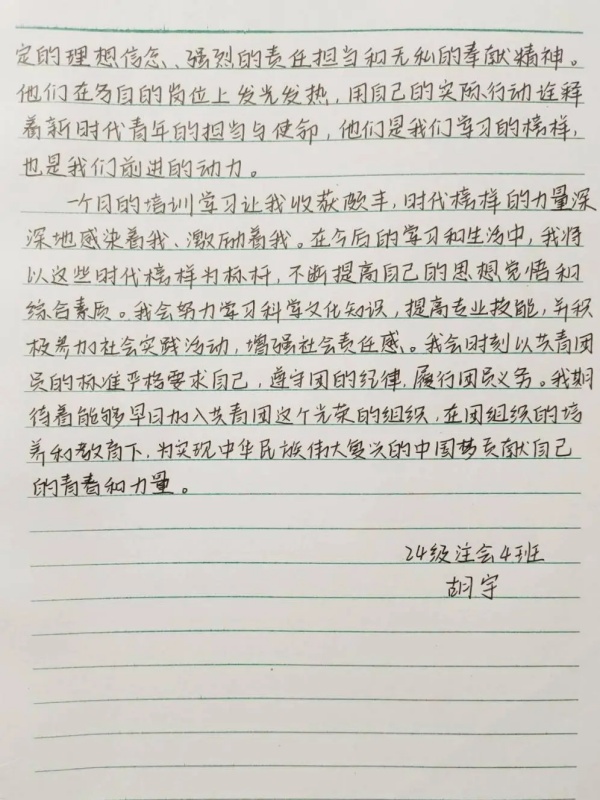 定的理想信念、强烈的责任担当和无私的奉献精神。
他们在各自的岗位上发光发热，用自己的实际行动诠释
着新时代青年的担当与使命，他们是我们学习的榜样，
也是我们前进的动力。
一个月的培训学习让我收获颇丰，时代榜样的力量深
深地感染着我、激励着我。在今后的学习和生活中，我将
以这些时代榜样为标杆，不断提高自己的思想觉悟和
综合素质。我会努力学习科学文化知识，提高专业技能，并积
极参加社会实践活动，增强社会责任感。我会时刻以共青团
员的标准严格要求自己，遵守团的纪律，履行团员义务。我期
待着能够早日加入共青团这个光荣的组织，在团组织的培
养和教育下，为实现中华民族伟大复兴的中国梦贡献自己
的青春和力量。
24级注会4班
胡宇